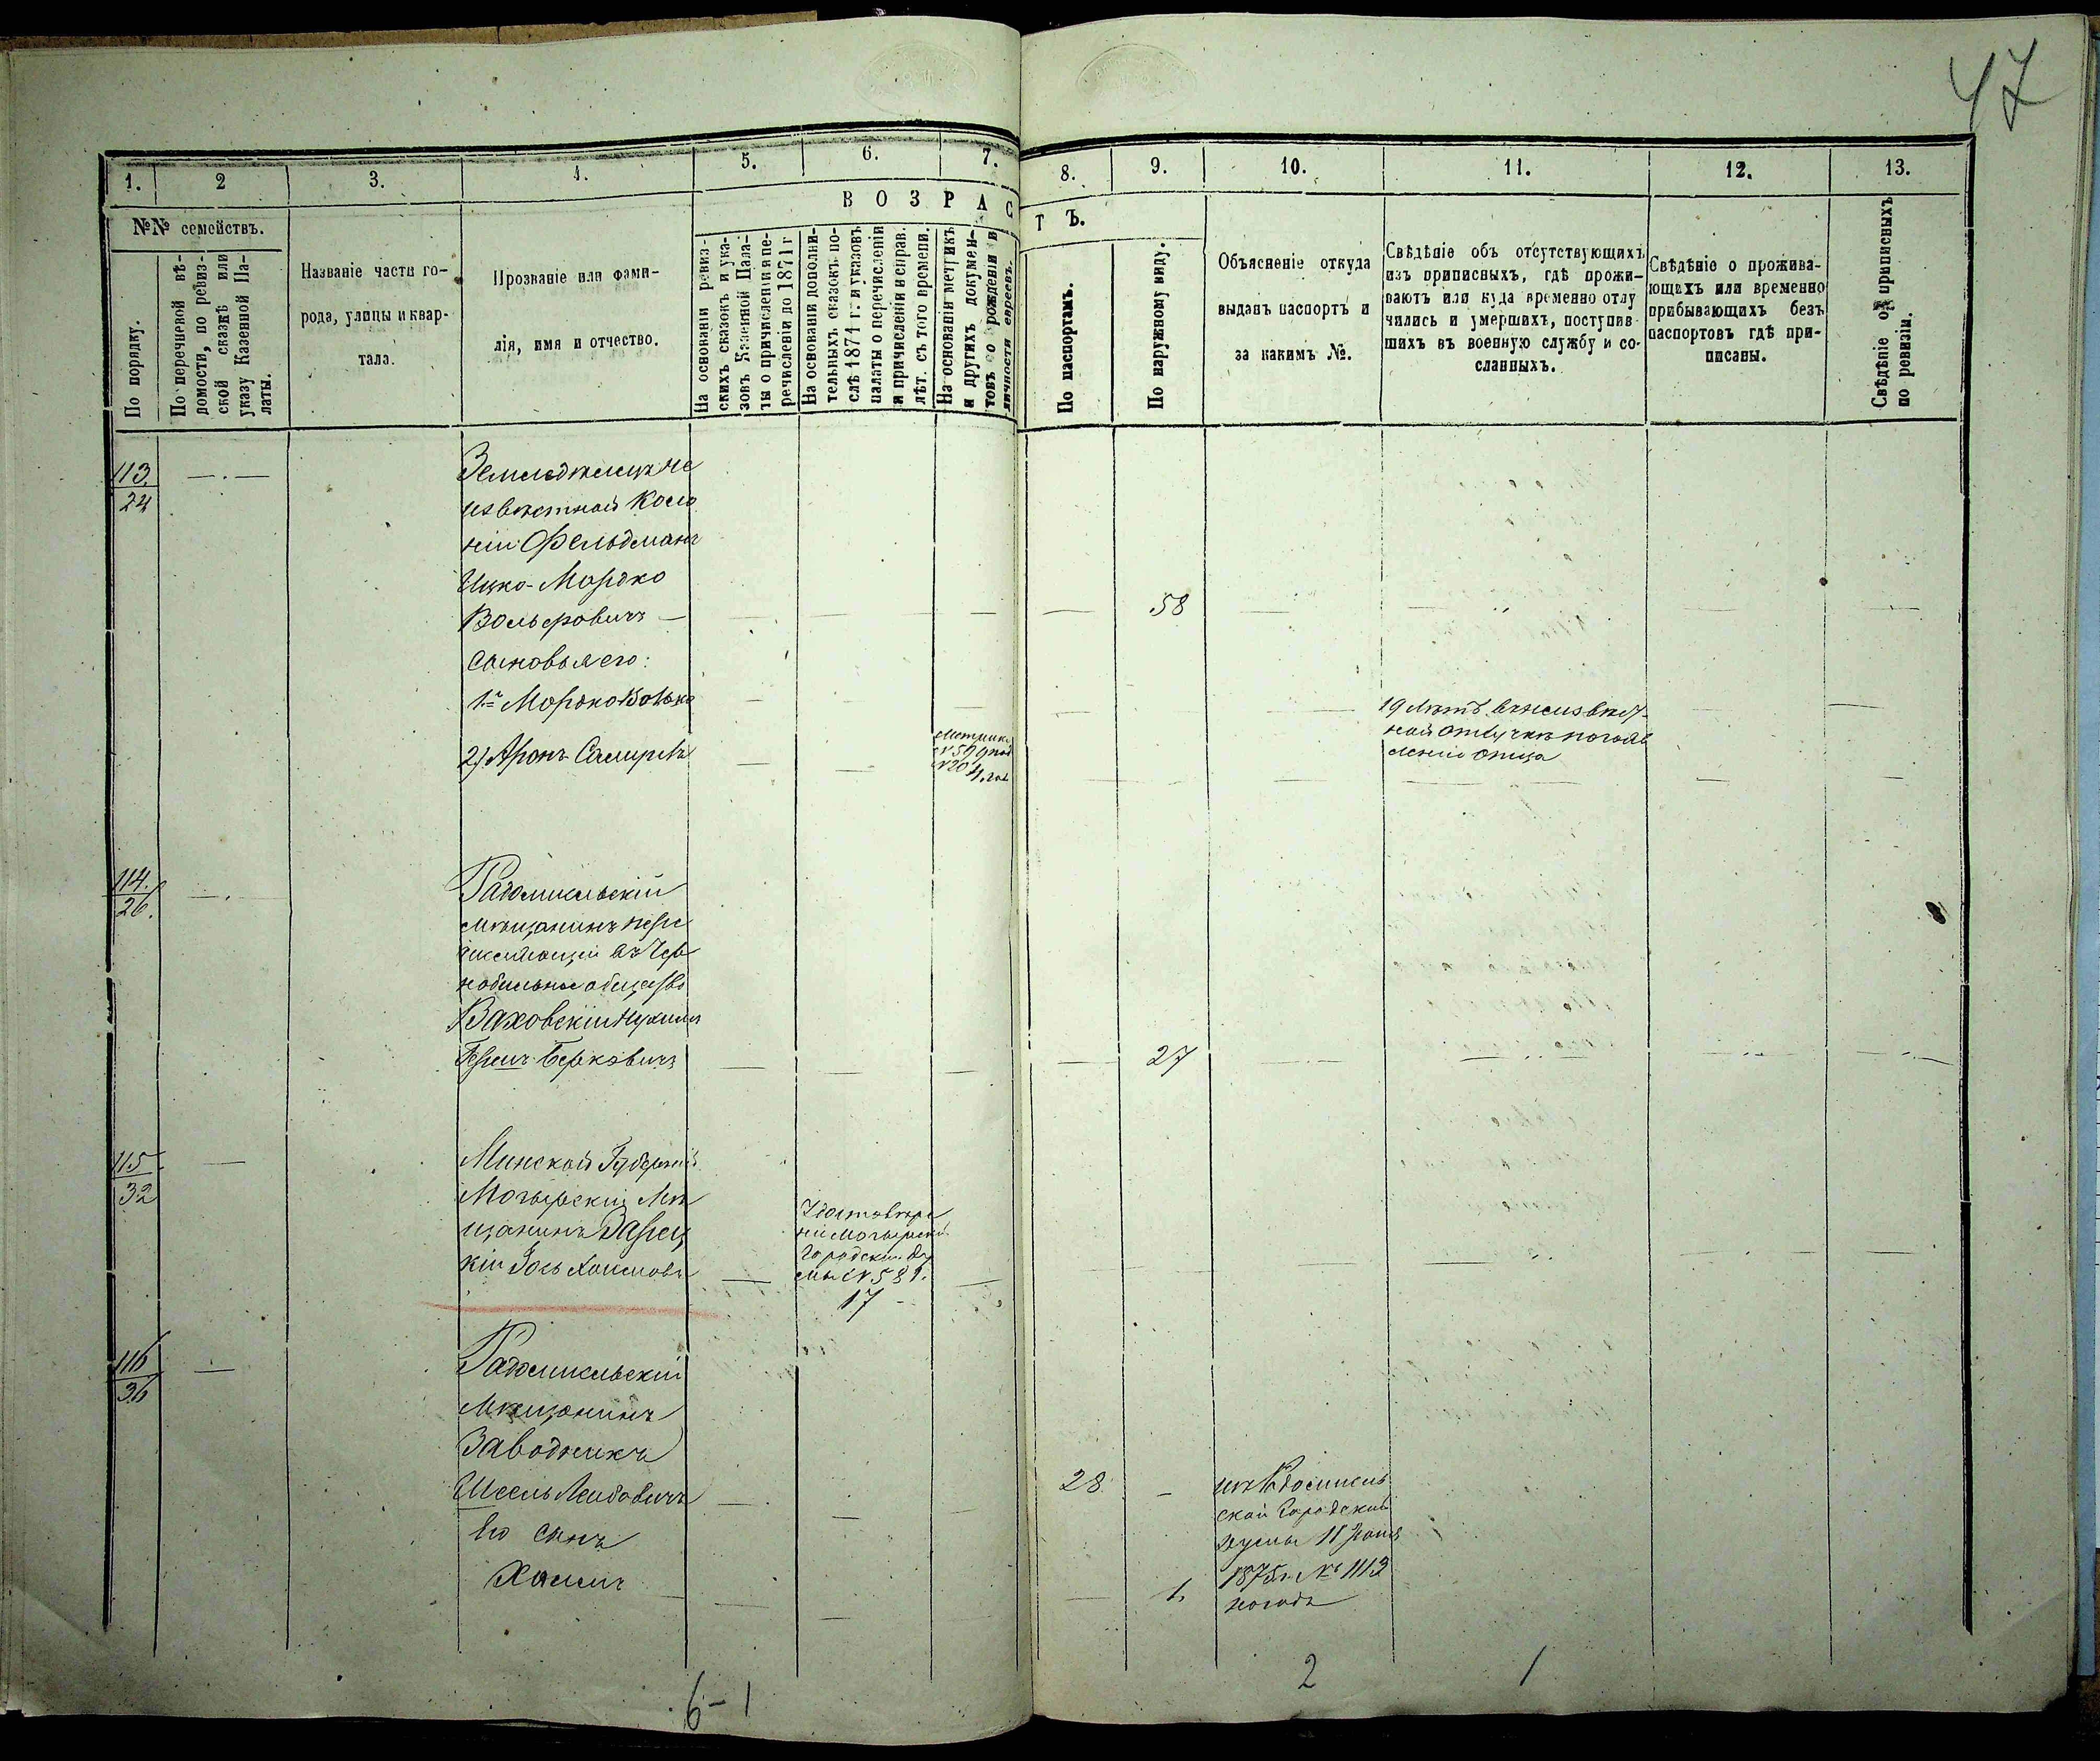 47
1. 2 3. 4. 5. 6. 7. 8. 9. 10. 11. 12. 13.
В О З Р А С Т Ъ.
№№ семействъ.
По порядку.
По перечневой вѣ-
домости, по ревиз-
ской сказкѣ или
указу Казенной Па-
латы.
Названіе части го-
рода, улицы и квар-
тала.
Прозваніе или фами-
лія, имя и отчество.
На основаніи ревиз-
скихъ сказокъ и ука-
зовъ Казенной Пала-
ты о причисленіи и пе-
речисленіи до 1871 г
На основаніи дополни-
тельныхъ сказокъ по-
слѣ 1871 г. и указовъ
палаты о перечисленіи
и причисленіи и справ.
лѣт. съ того времени.
На основаніи метрикъ
и другихъ докумен-
товъ о рожденіи и
личности евреевъ.
По паспортамъ.
По наружному виду.
Объясненіе откуда
выданъ паспортъ и
за какимъ №.
Свѣдѣніе объ отсутствующихъ
изъ приписныхъ, гдѣ прожи-
ваютъ или куда временно отлу
чились и умершихъ, поступив
шихъ въ военную службу и со-
сланныхъ.
Свѣдѣніе о прожива-
ющихъ или временно
прибывающихъ безъ
паспортовъ гдѣ при-
писаны.
Свѣдѣніе о приписныхъ
по ревизіи.
113.
24
Земледѣлецъ не
извѣстной Коло
ніи Фельдманъ
Ицко-Мордко
Вольфовичъ —
58
Сыновья его:
1й Мордко-Волько
19 лѣтъ въ неизвѣст-
ной отлучкѣ по заяв
ленію отца
2) Аронъ
№ 59
№ 20
114.
26.
Радомысльскій
мѣщанинъ пере
въ Чер
нобыльское общество
Ваховскій Нухимъ
Гершъ Берковичъ
27
115
32
Минской Губерніи
Мозырскій Мѣ
щанинъ Зарец
кій Іось Хаимовъ
Удостовѣре
ніе Мозырской
Городской Ду
мы № 581.
17 -
116
36
Радомысльскій
Мѣщанинъ
Заводникъ
Шселъ Лейбовичъ
28
изъ Радомысль
ской Городской
Думы 18
1875 г. № 1113
на годъ
Его сынъ
Хаимъ
1.
6 - 1
2
1